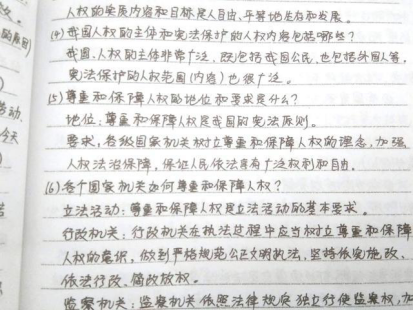 人权的实质内容和目标是人自由、平等地生存和发展。
(4)我国人权的主体和宪法保护的人权内容包括哪些?
我国人权的主体非常广泛,既包括我国公民,也包括外国人等,
宪法保护的人权范围(内容)也很广泛。
(5)尊重和保障人权的地位和要求是什么?
地位:尊重和保障人权是我国的宪法原则。
要求:各级国家机关树立尊重和保障人权的理念,加强
人权法治保障,保证人民依法享有广泛权利和自由。
(6)各个国家机关如何尊重和保障人权?
立法活动:尊重和保障人权是立法活动的基本要求。
行政机关:行政机关在执法过程中应当树立尊重和保障
人权的意识,做到严格规范公正文明执法,坚持依宪施政、
依法行政、简政放权。
监察机关:监察机关依照法律规定独立行使监察权,加
动.
今天